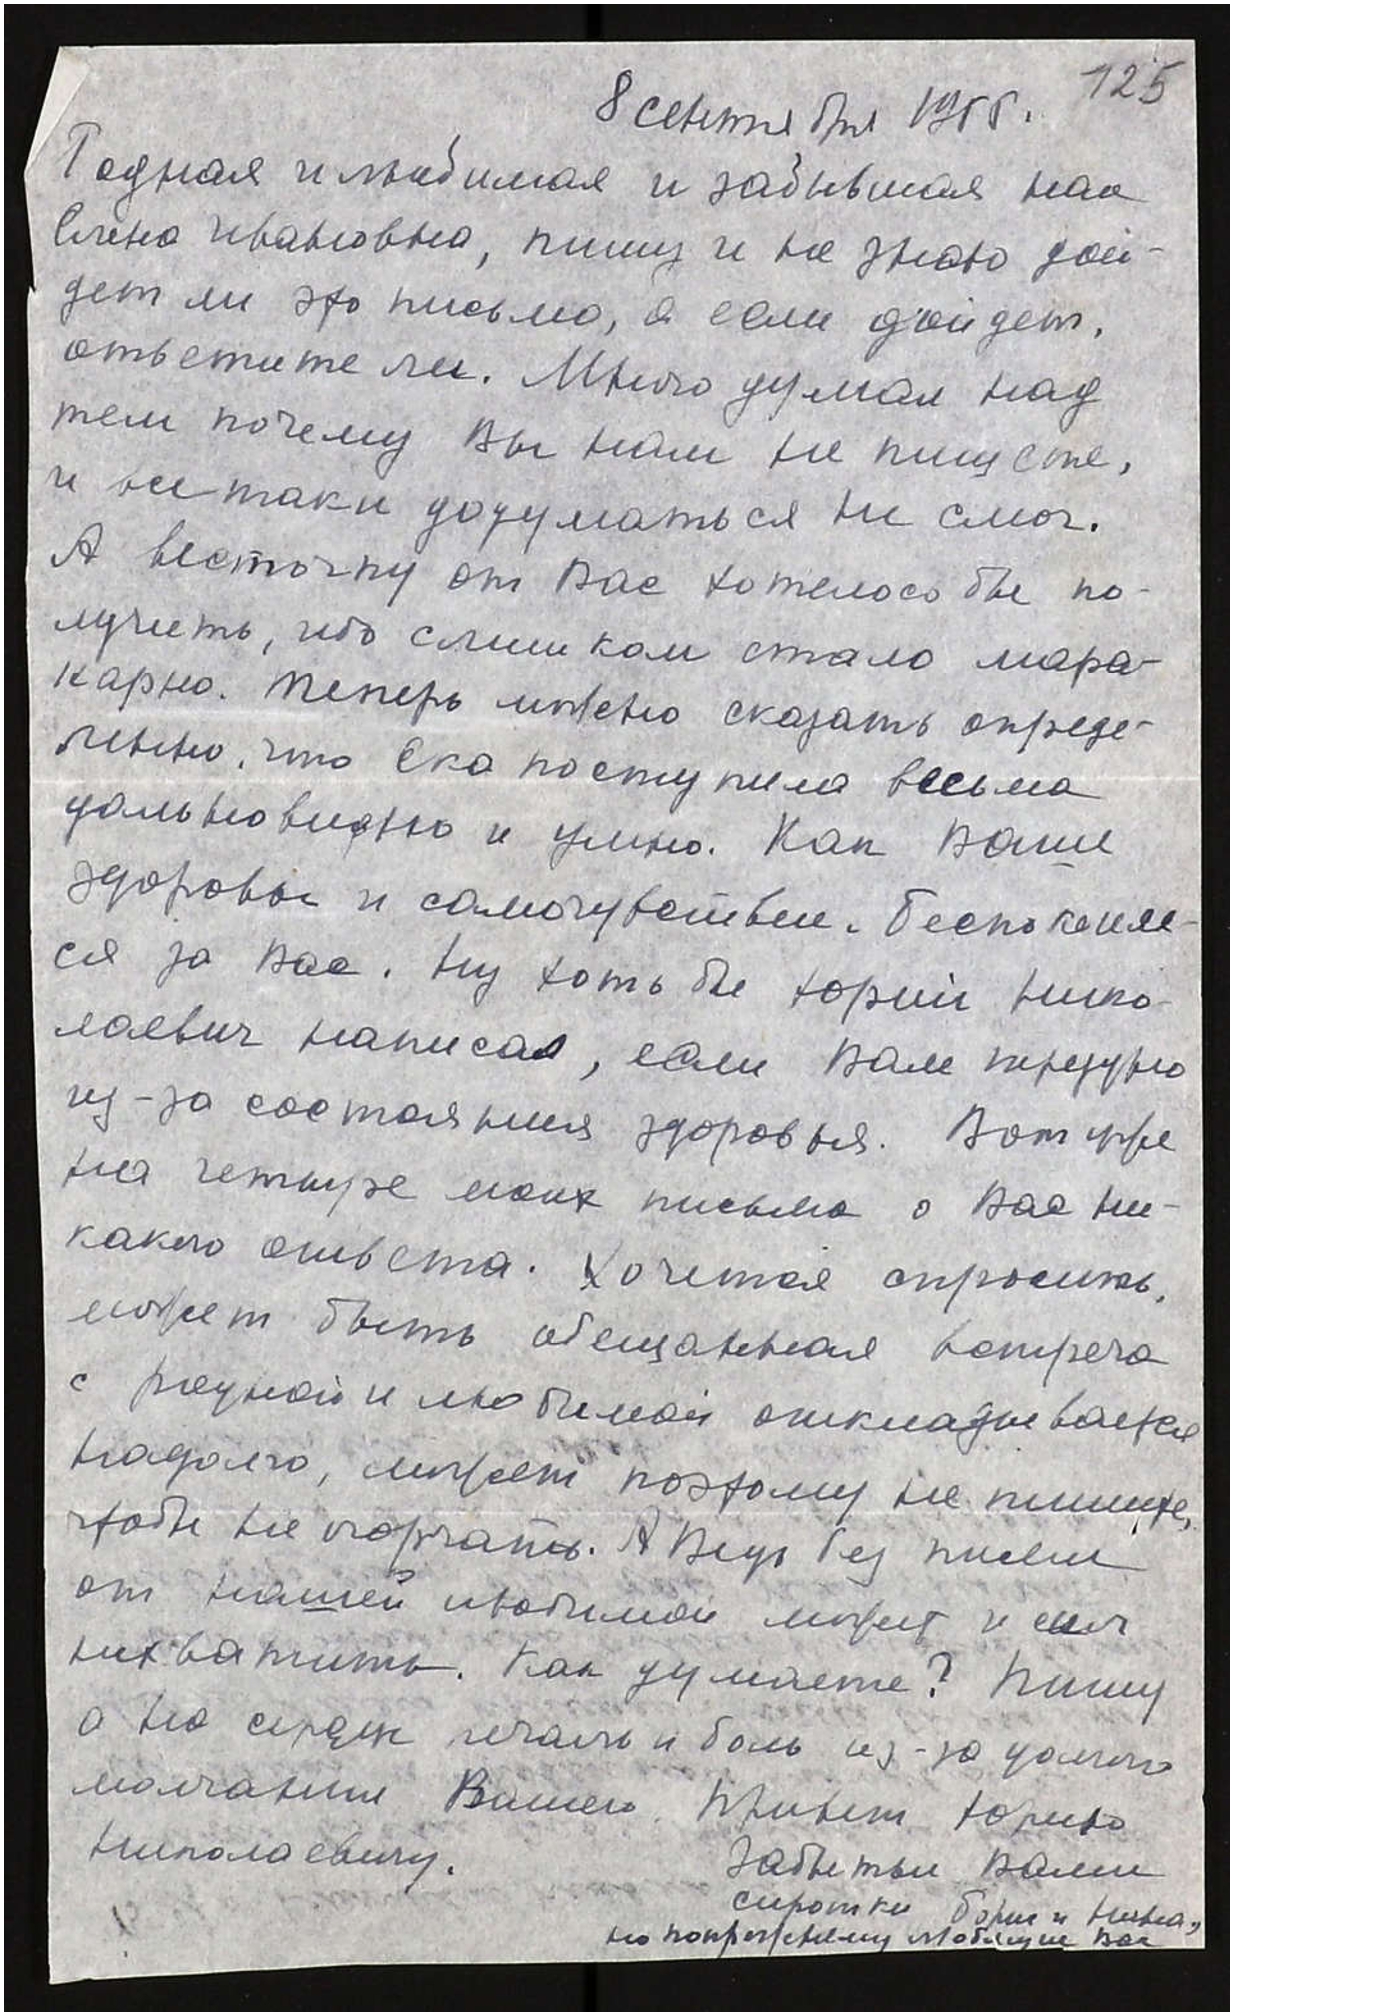 125
8 сентября 1955.
Родная и любимая и забывшая нас
Елена Ивановна, пишу и не знаю дой-
дет ли это письмо, а если дойдет,
ответите ли. Много думал над
тем почему Вы нам не пишете,
и все таки додуматься не смог.
А весточку от Вас хотелось бы по-
лучить, ибо слишком стало мара-
карно. Теперь можно сказать опреде-
ленно, что Ека поступила весьма
дальновидно и умно. Как Ваше
здоровье и самочувствие. Беспокоим-
ся за Вас. Ну хоть бы Юрий Нико-
лаевич написал, если Вам трудно
из-за состояния здоровья. Вот уже
на четыре моих письма о Вас ни-
какого ответа. Хочется спросить,
может быть обещанная встреча
с родной и любимой откладывается
надолго, может поэтому не пишите,
чтобы не огорчать. А Ведь без писем
от нашей любимой может и сил
нехватить. Как думаете? Пишу
а на сердце печаль и боль из-за долгого
молчания Вашего. Привет Юрию
Николаевичу.
Забытые Вами
сиротки Борис и Нина,
но попрежнему любящие Вас